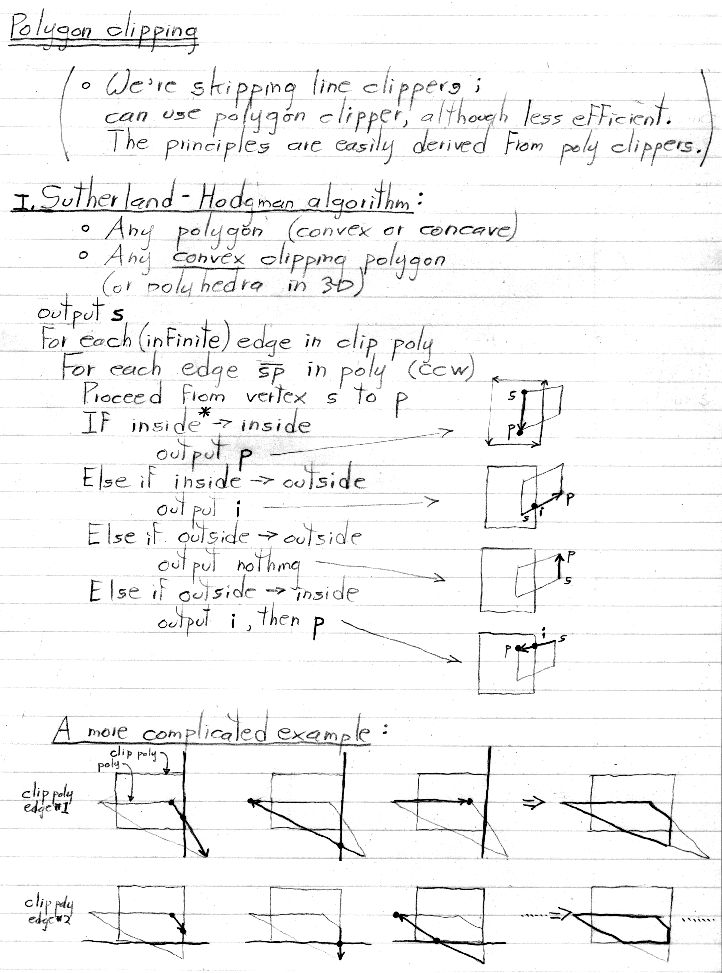 Polygon clipping
( ∘ We're skipping line clippers ;
can use polygon clipper, although less efficient.
The principles are easily derived from poly clippers. )
I. Sutherland - Hodgman algorithm :
∘ Any polygon (convex or concave)
∘ Any convex clipping polygon
(or polyhedra in 3D)
output s
For each (infinite) edge in clip poly
For each edge s̅p̅ in poly (ccw)
Proceed from vertex s to p
If inside* → inside
output p
s
p
Else if inside → outside
output i
s i p
Else if outside → outside
output nothing
p
s
Else if outside → inside
output i, then p
p i s
A more complicated example :
clip poly
poly
clip poly
edge #1
⇒
clip poly
edge #2
......⇒ ......